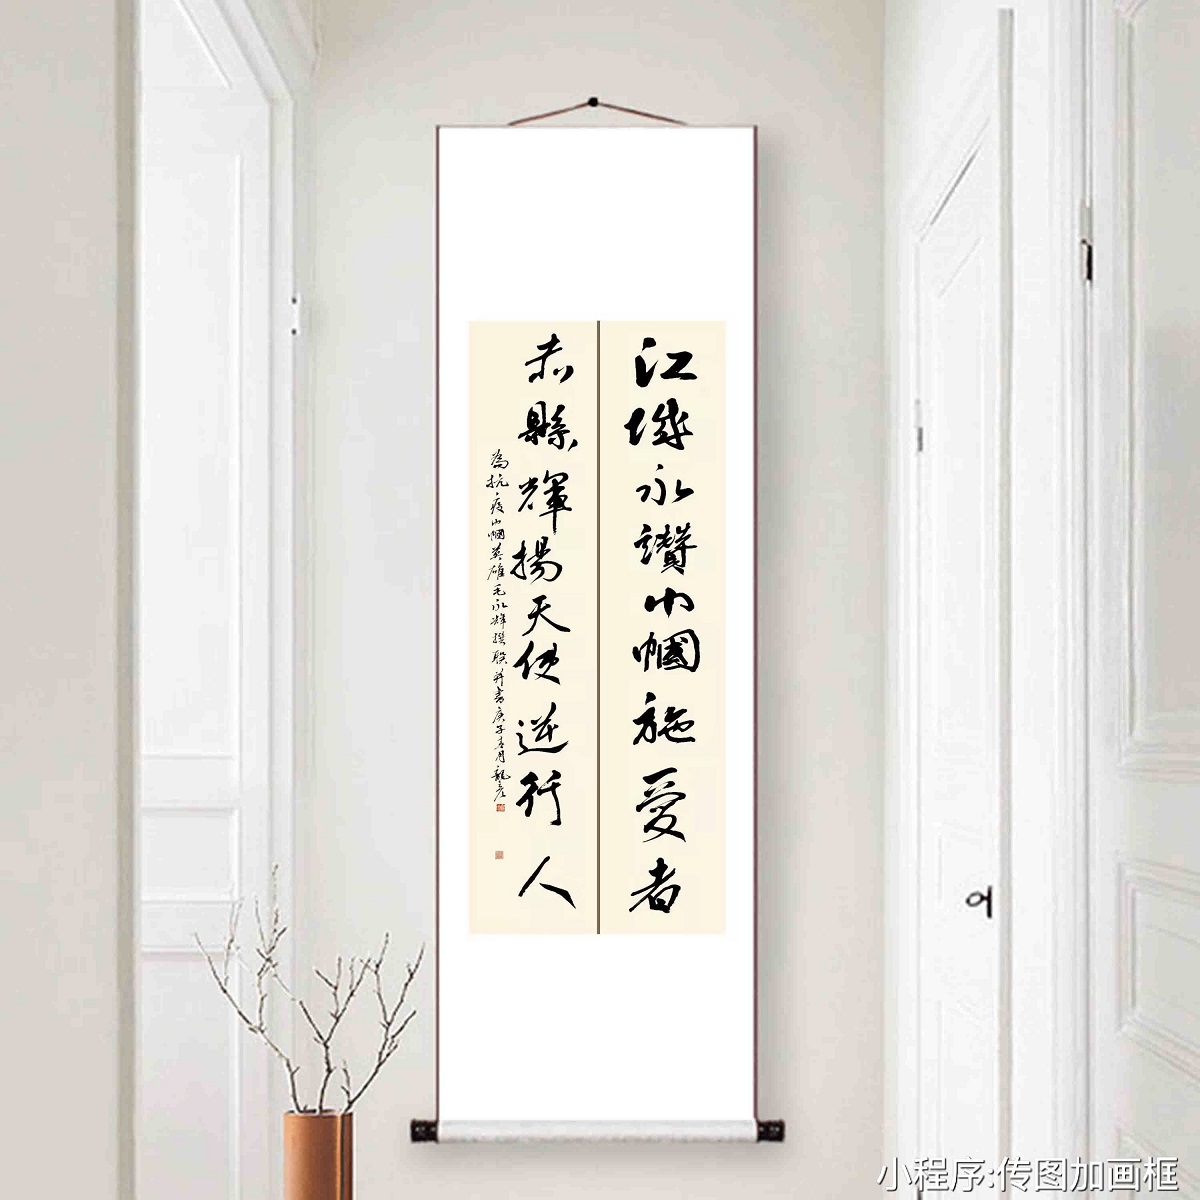 江城永讚巾帼施爱者
赤縣輝揚天使逆行人
為抗疫巾帼英雄毛永輝撰联并书庚子春月
小程序:传图加画框